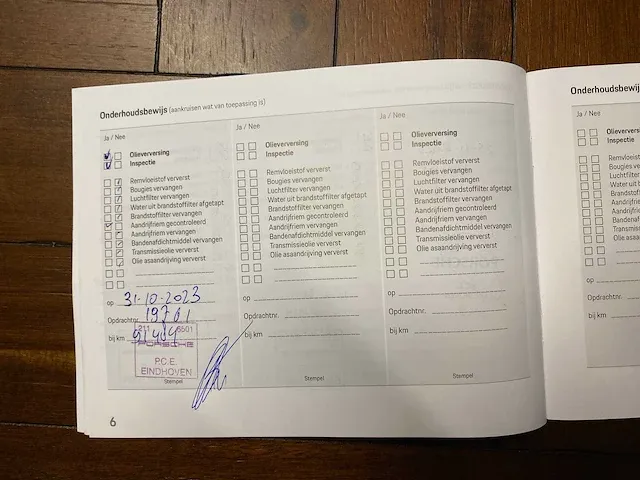 Onderhoudsbewijs (aankruisen wat van toepassing is)
Ja / Nee
Olieverversing
Inspectie
Remvloeistof ververst
Bougies vervangen
Luchtfilter vervangen
Water uit brandstoffilter afgetapt
Brandstoffilter vervangen
Aandrijfriem gecontroleerd
Aandrijfriem vervangen
Bandenafdichtmiddel vervangen
Transmissieolie ververst
Olie asaandrijving ververst
op 31-10-2023
Opdrachtnr. 19701
bij km
211 6501
PORSCHE
P.C.E.
EINDHOVEN
Stempel
6
Ja / Nee
Olieverversing
Inspectie
Remvloeistof ververst
Bougies vervangen
Luchtfilter vervangen
Water uit brandstoffilter afgetapt
Brandstoffilter vervangen
Aandrijfriem gecontroleerd
Aandrijfriem vervangen
Bandenafdichtmiddel vervangen
Transmissieolie ververst
Olie asaandrijving ververst
op
Opdrachtnr.
bij km
Stempel
Ja / Nee
Olieverversing
Inspectie
Remvloeistof ververst
Bougies vervangen
Luchtfilter vervangen
Water uit brandstoffilter afgetapt
Brandstoffilter vervangen
Aandrijfriem gecontroleerd
Aandrijfriem vervangen
Bandenafdichtmiddel vervangen
Transmissieolie ververst
Olie asaandrijving ververst
op
Opdrachtnr.
bij km
Stempel
Onderhoudsbewijs
Ja / Nee
Olieverversing
Inspectie